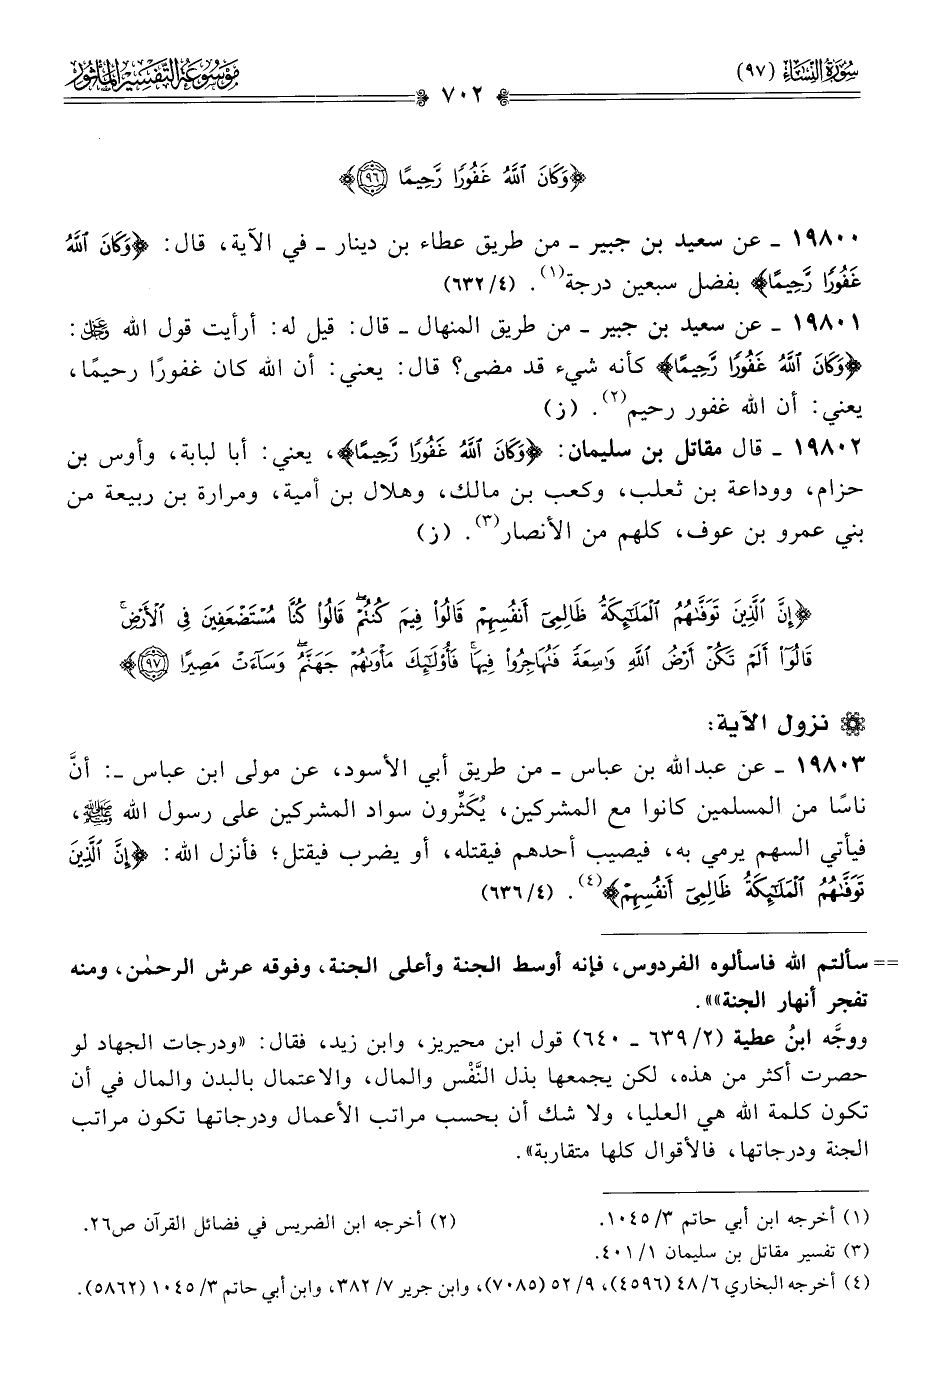 سورة النساء (٩٧)
٧٠٢
موسوعة التفسير المأثور
﴿وَكَانَ ٱللَّهُ غَفُورًا رَّحِيمًا ٩٦﴾
١٩٨٠٠ ـ عن سعيد بن جبير ـ من طريق عطاء بن دينار ـ في الآية، قال: ﴿وَكَانَ ٱللَّهُ
غَفُورًا رَّحِيمًا﴾ بفضل سبعين درجة(١). (٤/ ٦٣٢)
١٩٨٠١ ـ عن سعيد بن جبير ـ من طريق المنهال ـ قال: قيل له: أرأيت قول الله ﷿:
﴿وَكَانَ ٱللَّهُ غَفُورًا رَّحِيمًا﴾ كأنه شيء قد مضى؟ قال: يعني: أن الله كان غفورًا رحيمًا،
يعني: أن الله غفور رحيم(٢). (ز)
١٩٨٠٢ ـ قال مقاتل بن سليمان: ﴿وَكَانَ ٱللَّهُ غَفُورًا رَّحِيمًا﴾، يعني: أبا لبابة، وأوس بن
حزام، ووداعة بن ثعلب، وكعب بن مالك، وهلال بن أمية، ومرارة بن ربيعة من
بني عمرو بن عوف، كلهم من الأنصار(٣). (ز)
﴿إِنَّ ٱلَّذِينَ تَوَفَّىٰهُمُ ٱلْمَلَٰٓئِكَةُ ظَالِمِىٓ أَنفُسِهِمْ قَالُوا۟ فِيمَ كُنتُمْ ۖ قَالُوا۟ كُنَّا مُسْتَضْعَفِينَ فِى ٱلْأَرْضِ ۚ
قَالُوٓا۟ أَلَمْ تَكُنْ أَرْضُ ٱللَّهِ وَٰسِعَةً فَتُهَاجِرُوا۟ فِيهَا ۚ فَأُو۟لَٰٓئِكَ مَأْوَىٰهُمْ جَهَنَّمُ ۖ وَسَآءَتْ مَصِيرًا ٩٧﴾
نزول الآية:
١٩٨٠٣ ـ عن عبدالله بن عباس ـ من طريق أبي الأسود، عن مولى ابن عباس ـ: أنَّ
ناسًا من المسلمين كانوا مع المشركين، يُكَثِّرون سواد المشركين على رسول الله ﷺ،
فيأتي السهم يرمي به، فيصيب أحدهم فيقتله، أو يضرب فيقتل؛ فأنزل الله: ﴿إِنَّ ٱلَّذِينَ
تَوَفَّىٰهُمُ ٱلْمَلَٰٓئِكَةُ ظَالِمِىٓ أَنفُسِهِمْ﴾(٤). (٤/ ٦٣٦)
== سألتم الله فاسألوه الفردوس، فإنه أوسط الجنة وأعلى الجنة، وفوقه عرش الرحمٰن، ومنه
تفجر أنهار الجنة»».
ووجَّه ابنُ عطية (٢/ ٦٣٩ ـ ٦٤٠) قول ابن محيريز، وابن زيد، فقال: «ودرجات الجهاد لو
حصرت أكثر من هذه، لكن يجمعها بذل النَّفْس والمال، والاعتمال بالبدن والمال في أن
تكون كلمة الله هي العليا، ولا شك أن بحسب مراتب الأعمال ودرجاتها تكون مراتب
الجنة ودرجاتها، فالأقوال كلها متقاربة».
(١) أخرجه ابن أبي حاتم ٣/ ١٠٤٥. (٢) أخرجه ابن الضريس في فضائل القرآن ص٢٦.
(٣) تفسير مقاتل بن سليمان ١/ ٤٠١.
(٤) أخرجه البخاري ٦/ ٤٨ (٤٥٩٦)، ٩/ ٥٢ (٧٠٨٥)، وابن جرير ٧/ ٣٨٢، وابن أبي حاتم ٣/ ١٠٤٥ (٥٨٦٢).